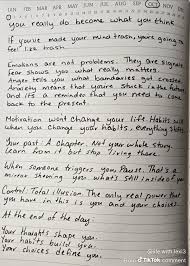 JAN FEB MAR APR MAY JUN JUL AUG SEP OCT NOV DEC
you really do become what you think
If you've made your mind trash, you're going to
feel like trash.
Emotions are not problems. They are signals
fear shows you what really matters.
Anger tells you what boundaries got crossed
Anxiety means that you're stuck in the future
and it's a reminder that you need to come
back to the present.
Motivation won't change your life Habits will
when you change your habits, everything shifts
Your past: A chapter. Not your whole story.
Learn from it but stop living there.
When someone triggers you Pause. That's a
mirror showing you what's still inside of you
Control: Total illusion. The only real power that
you have in this is you and your choices.
At the end of the day:
Your thoughts shape you.
Your habits build you.
Your choices define you.
From TikTok comment